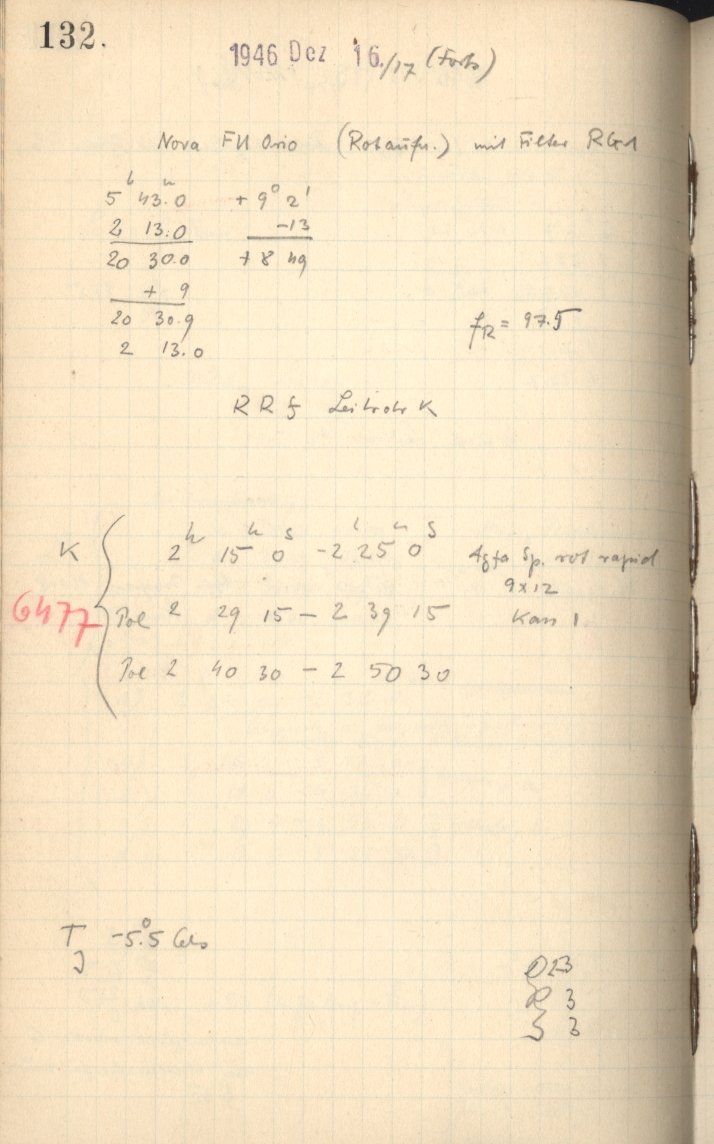 132.
1946 Dez 16./17 (Forts)
Nova FU Orio (Rotaufn.) mit Filter RG1
5 h 43.0 m + 9° 2'
2 13.0 -13
20 30.0 + 8 49
+ 9
20 30.9
2 13.0
fR = 97.5
R R Leitrohr K
K 2 h 15 m 0 s - 2 h 25 m 0 s Agfa Sp. rot rapid
9x12
6477 Pol 2 29 15 - 2 39 15 Kass 1
Pol 2 40 30 - 2 50 30
T -5.°5 Cels
J
D 23
R 3
S 3